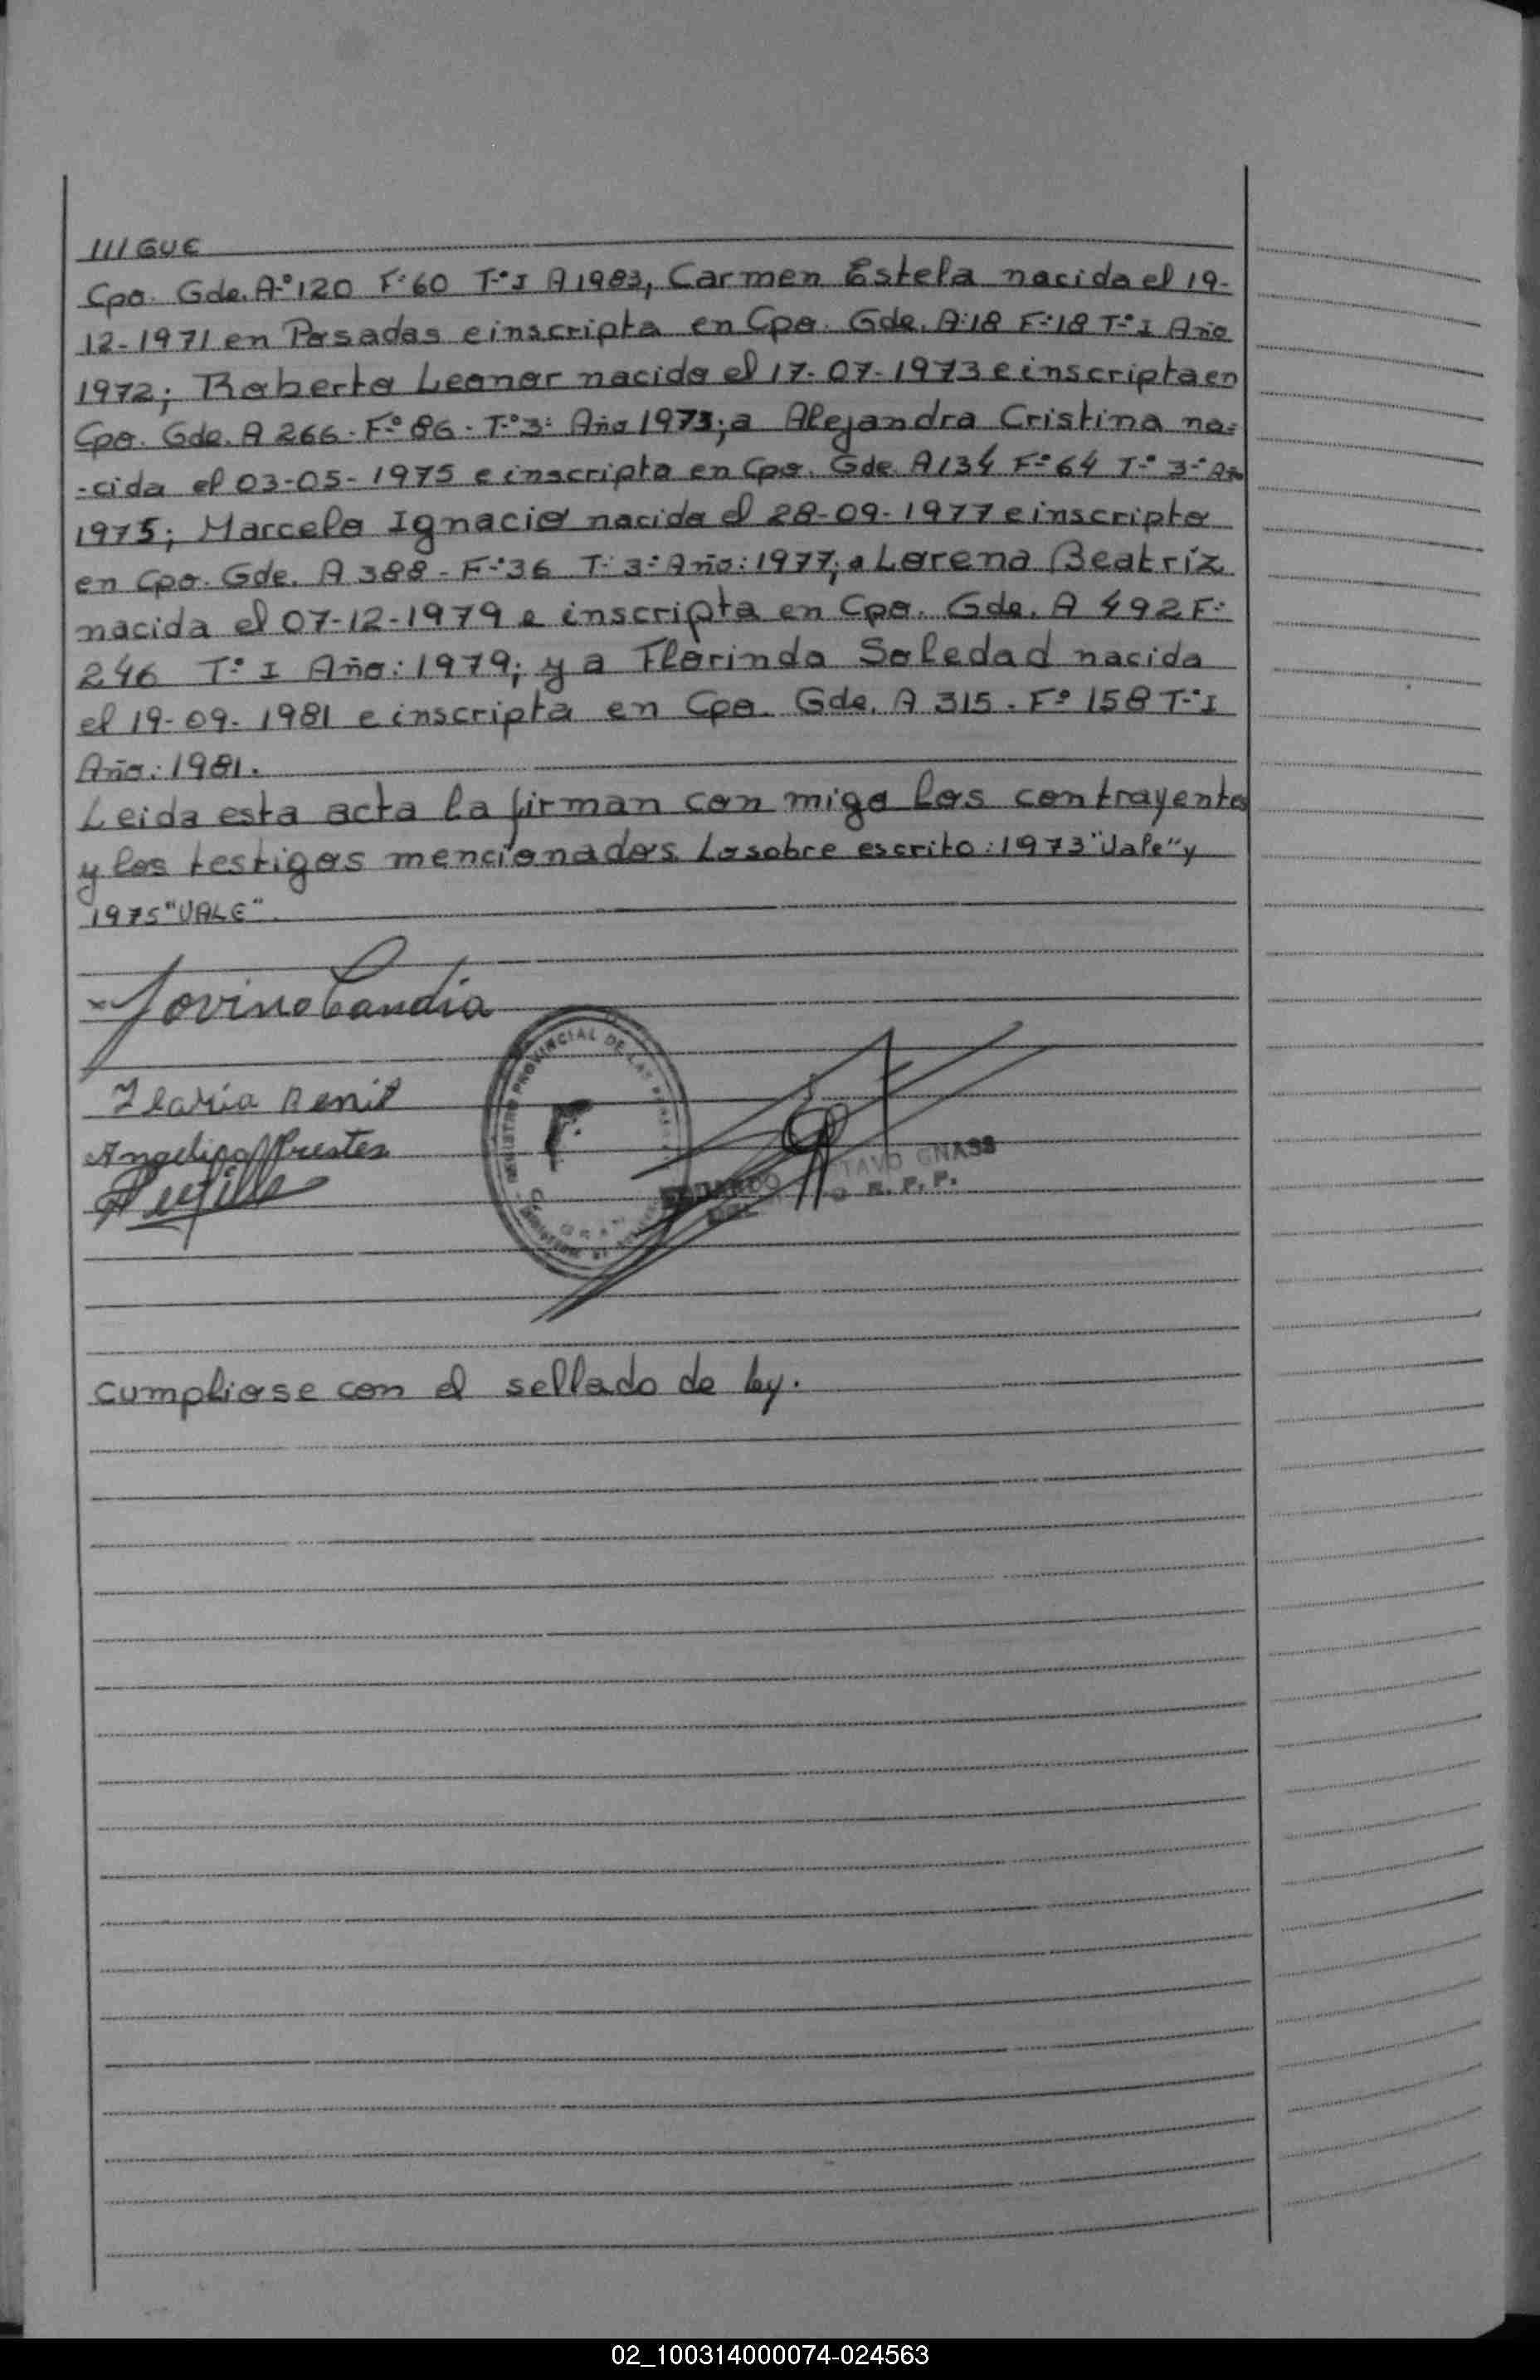 ///GUE
Cpo. Gde. A-º 120 Fº 60 T-º I A 1983, Carmen Estela nacida el 19-
12-1971 en Posadas e inscripta en Cpo. Gde. A:18 F-º 18 T-º I Año
1972; Roberto Leonor nacido el 17-07-1973 e inscripta en
Cpo. Gde. A 266 - F-º 86 - T-º 3: Año 1973; a Alejandra Cristina na-
-cida el 03-05-1975 e inscripta en Cpo. Gde A 134 F-º 64 T-º 3-º Año
1975; Marcelo Ignacio nacido el 28-09-1977 e inscripto
en Cpo. Gde. A 388 - F-º 36 T-º 3-º Año: 1977; a Lorena Beatríz
nacida el 07-12-1979 e inscripta en Cpo. Gde. A 492 F-º
246 T-º I Año: 1979; y a Florinda Soledad nacida
el 19-09-1981 e inscripta en Cpo. Gde. A 315 - Fº 158 T-º I
Año: 1981.
Leida esta acta la firman con migo los contrayentes
y los testigos mencionados. Lo sobre escrito: 1973 "Vale" y
1975 "VALE".
x Jovino Candia
Ilaria Benit
Angelica Prestes
REGISTRO PROVINCIAL DE LAS
TAVO GNASS
R. P. P.
cumpliose con el sellado de ley.
02_100314000074-024563